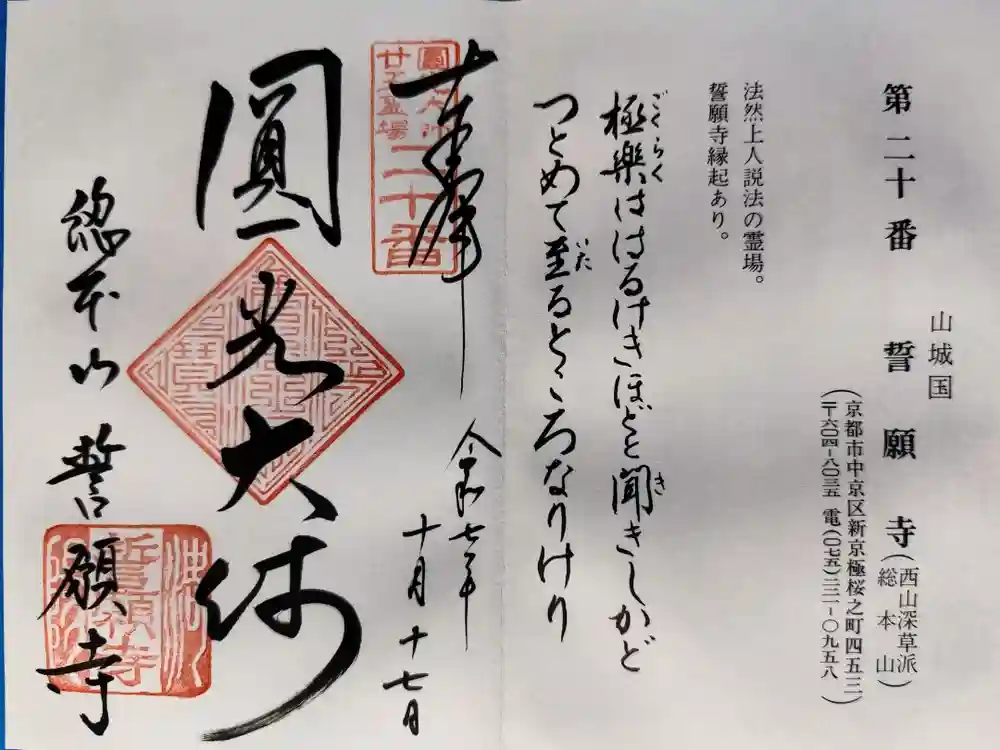 山城国
第二十番 誓願寺(西山深草派総本山)
(京都市中京区新京極桜之町四五三)
(〒六〇四-八〇三五 電(〇七五)二二一-〇九五八)
法然上人説法の霊場。
誓願寺縁起あり。
極楽ははるけきほどと聞きしかど
ごくらく
き
つとめて至るところなりけり
いた
奉拝
二十番
令和七年
十月十七日
圓光大師
総本山 誓願寺